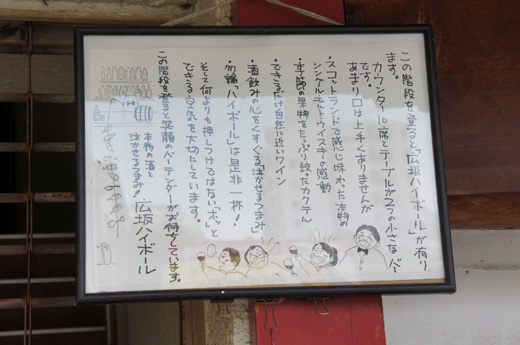 この階段を登ると「広坂ハイボール」が有り
ます。
カウンター10席とテーブルが2つの小さなバー
です。
あまり口は上手くありませんが
・スコットランドで感じ味わった本物の
シングルモルトウイスキーの感動
・季節の果物をたっぷり使ったカクテル
・できるだけ自然に近いワイン
・酒飲みの心をくすぐる「泣かせるつまみ」
・勿論「ハイボール」は是非一杯!
そして何よりも押しつけではない「ホッ」と
できる空気を大切にしています。
この階段を登ると笑顔のバーテンダーがお待ちしています。
本物の酒と
泣かせるつまみ!
広坂ハイボール